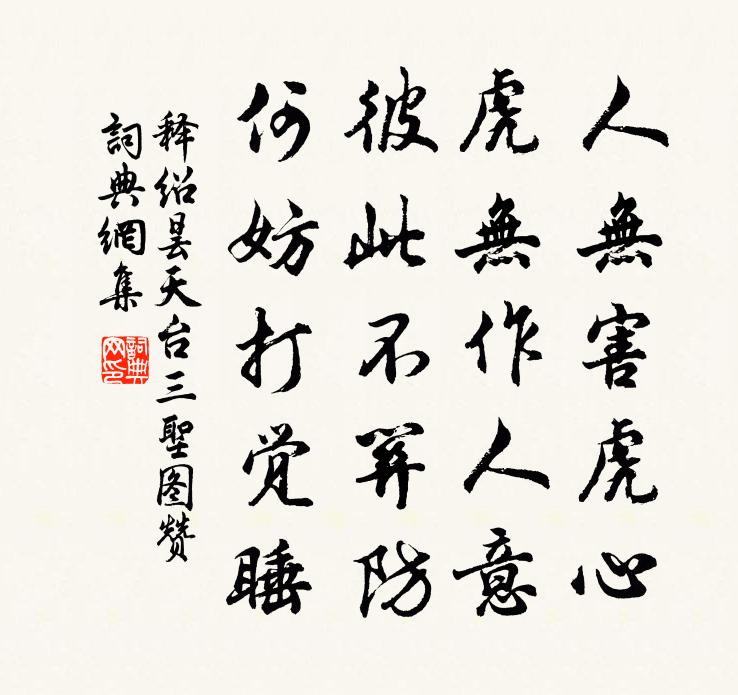 人無害虎心
虎無作人意
彼此不關防
何妨打觉睡
释绍昙天台三聖图赞
詞典網集
詞典网印